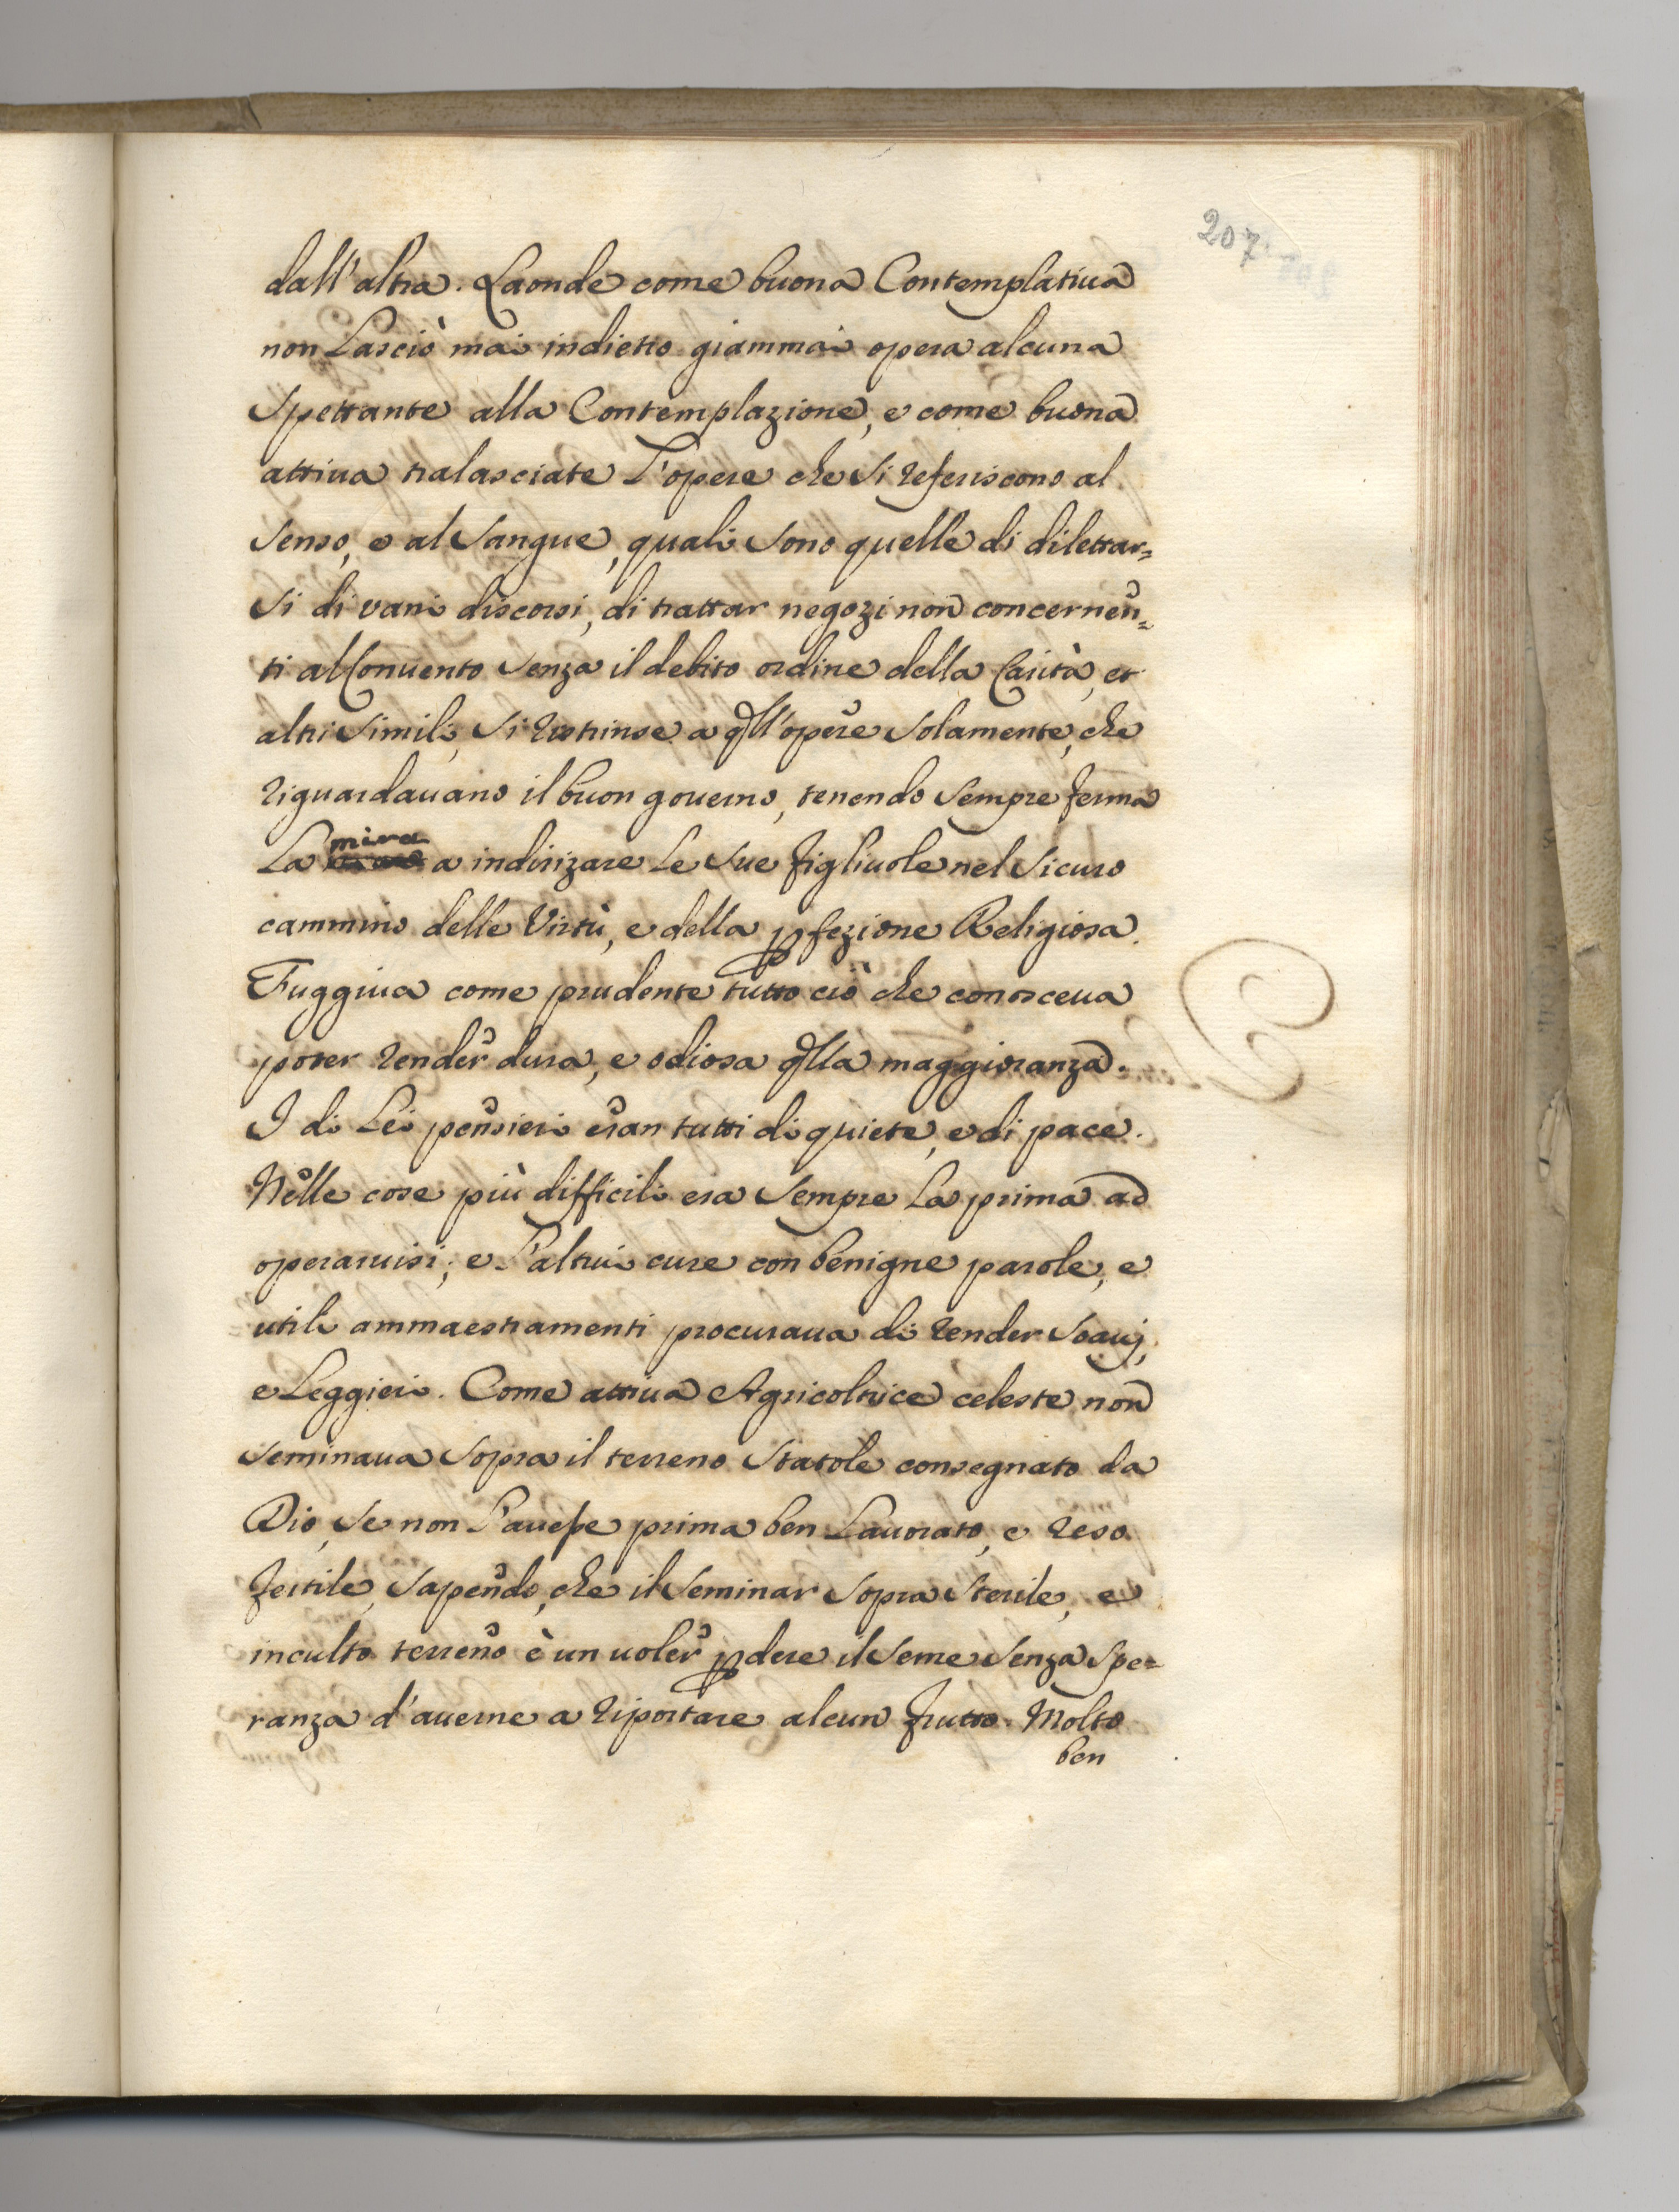 207.
dall'altra. Laonde come buona Contemplatiua
non Lasciò mai indietro giammai opera alcuna
Spettante alla Contemplazione, e come buona
attiua tralasciate L'opere che Si referiscono al
Senso, e al Sangue, quali Sono quelle di dilettar=
Si di vani discorsi, di trattar negozi non concernen=
ti al Conuento Senza il debito ordine della Carità, et
altri Simili, Si ristrinse a qll'opere Solamente, che
riguardauano il buon gouerno, tenendo Sempre ferma
La mira a indirizare Le Sue figliuole nel Sicuro
cammino delle Virtù, e della pfezione Religiosa.
Fuggiua come prudente tutto ciò che conosceua
poter render dura, e odiosa qlla maggioranza.
I di Lei pensieri eran tutti di quiete, e di pace.
Nelle cose più difficili era Sempre La prima ad
operaruisi; e L'altrui cure con benigne parole, e
utili ammaestramenti procuraua di render Soauj,
e Leggieri. Come attiua Agricoltrice celeste non
Seminaua Sopra il terreno Statole consegnato da
Dio, Se non L'auesse prima ben Lauorato, e reso
fertile, Sapendo, che il Seminar Sopra Sterile, e
inculto terreno è un uoler pdere il Seme Senza Spe=
ranza d'auerne a riportare alcun frutto. Molto
ben